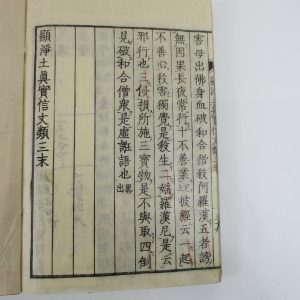 害母出佛身血破和合僧殺阿羅漢五者謗
無因果長夜常行十不善業彼經云一起
不善心殺害獨覺是殺生二婬羅漢尼是云
邪行也三侵損所施三寶物是不與取四倒
見破和合僧衆是虛誑語也略出
顯淨土眞實信文類三末